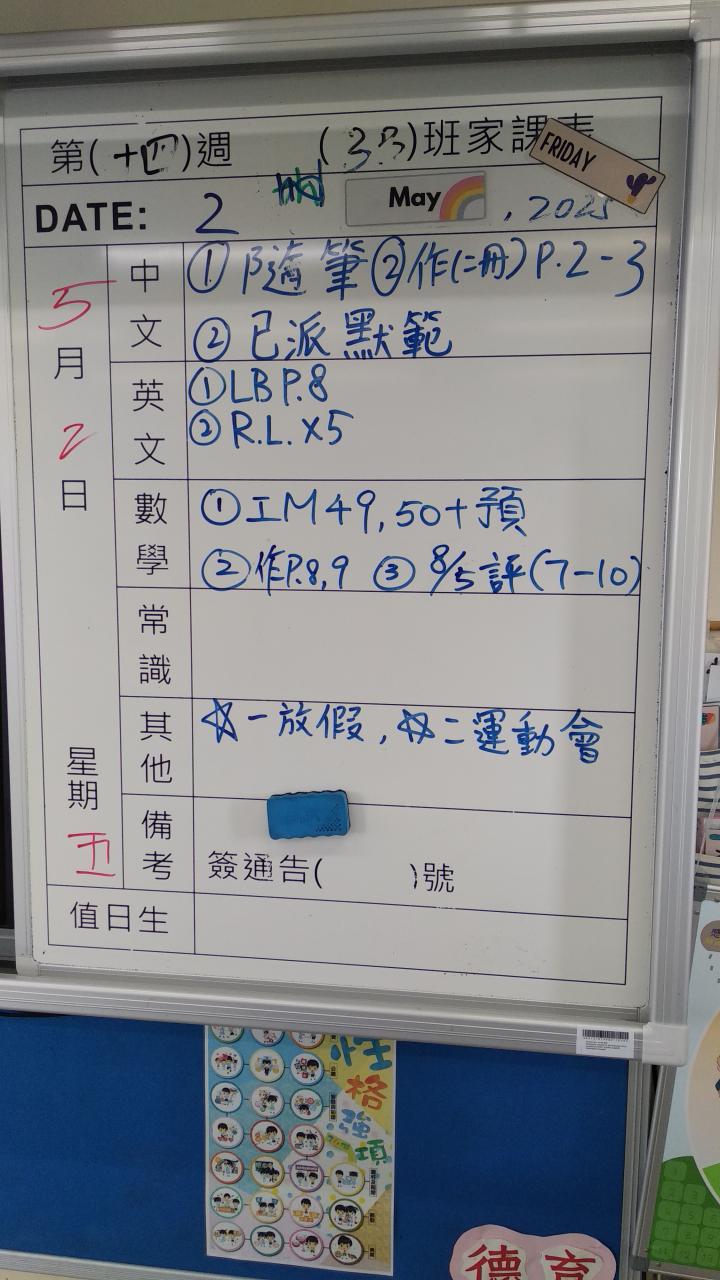 第(十四)週 (3B)班家課表
FRIDAY
DATE: 2 May, 2025
5月2日
星期五
中文
①隨筆②作(二冊)P.2-3
②已派默範
英文
①LB P.8
②R.L. X5
數學
①工M49,50+預
②作P.8,9 ③8/5評(7-10)
常識
其他
☆一放假,☆二運動會
備考
簽通告( )號
值日生
性格強項
德育